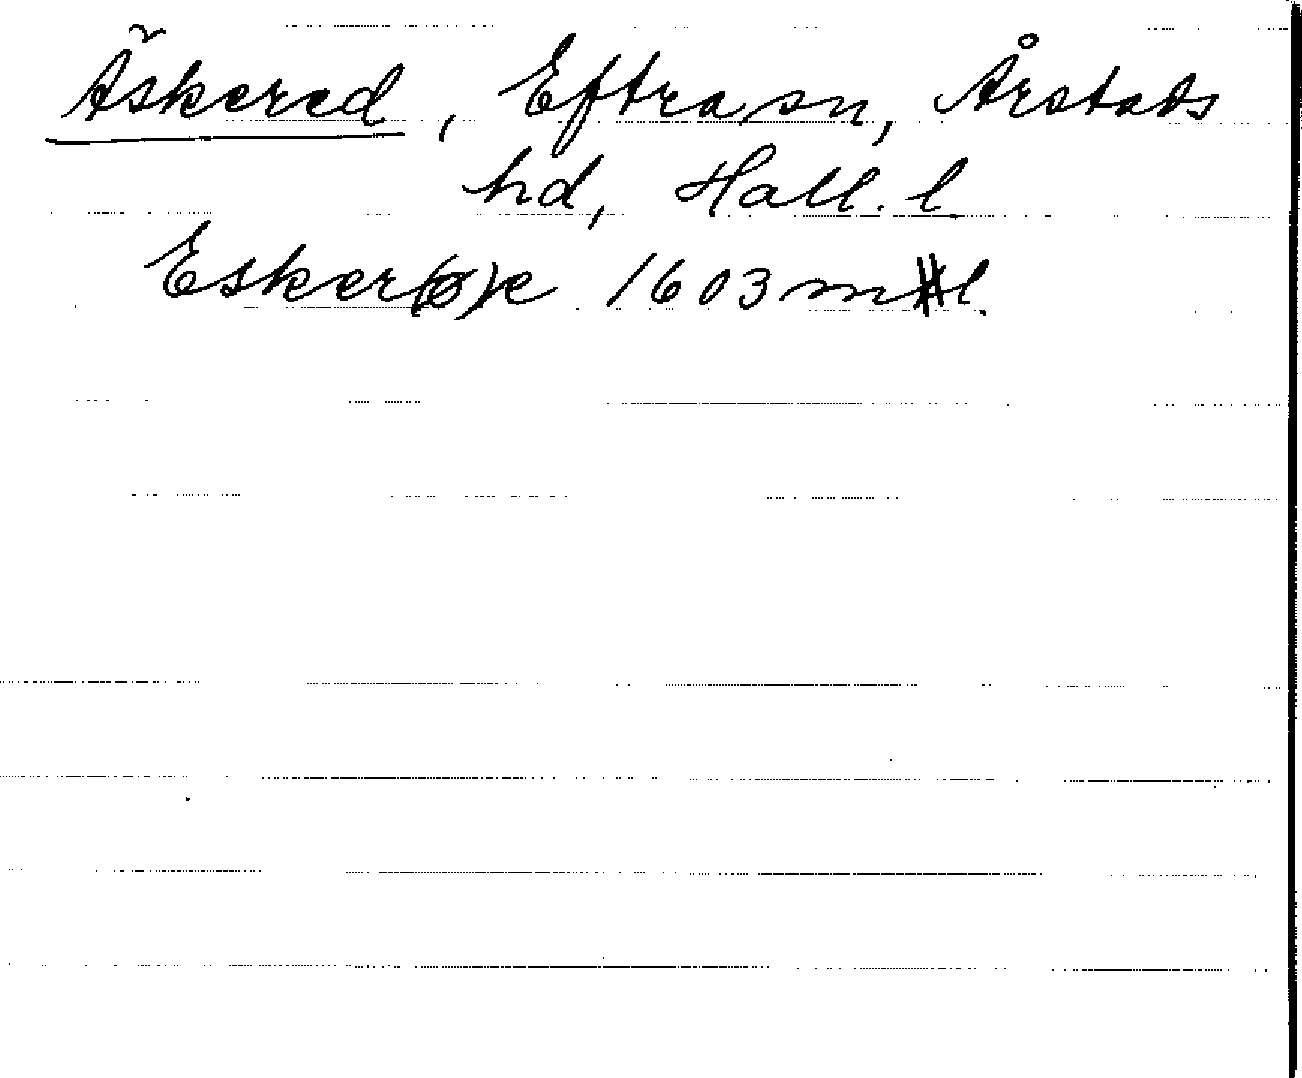 Äskered, Eftra sn, Årstads
hd, Hall. l
Esker(ø)e 1603